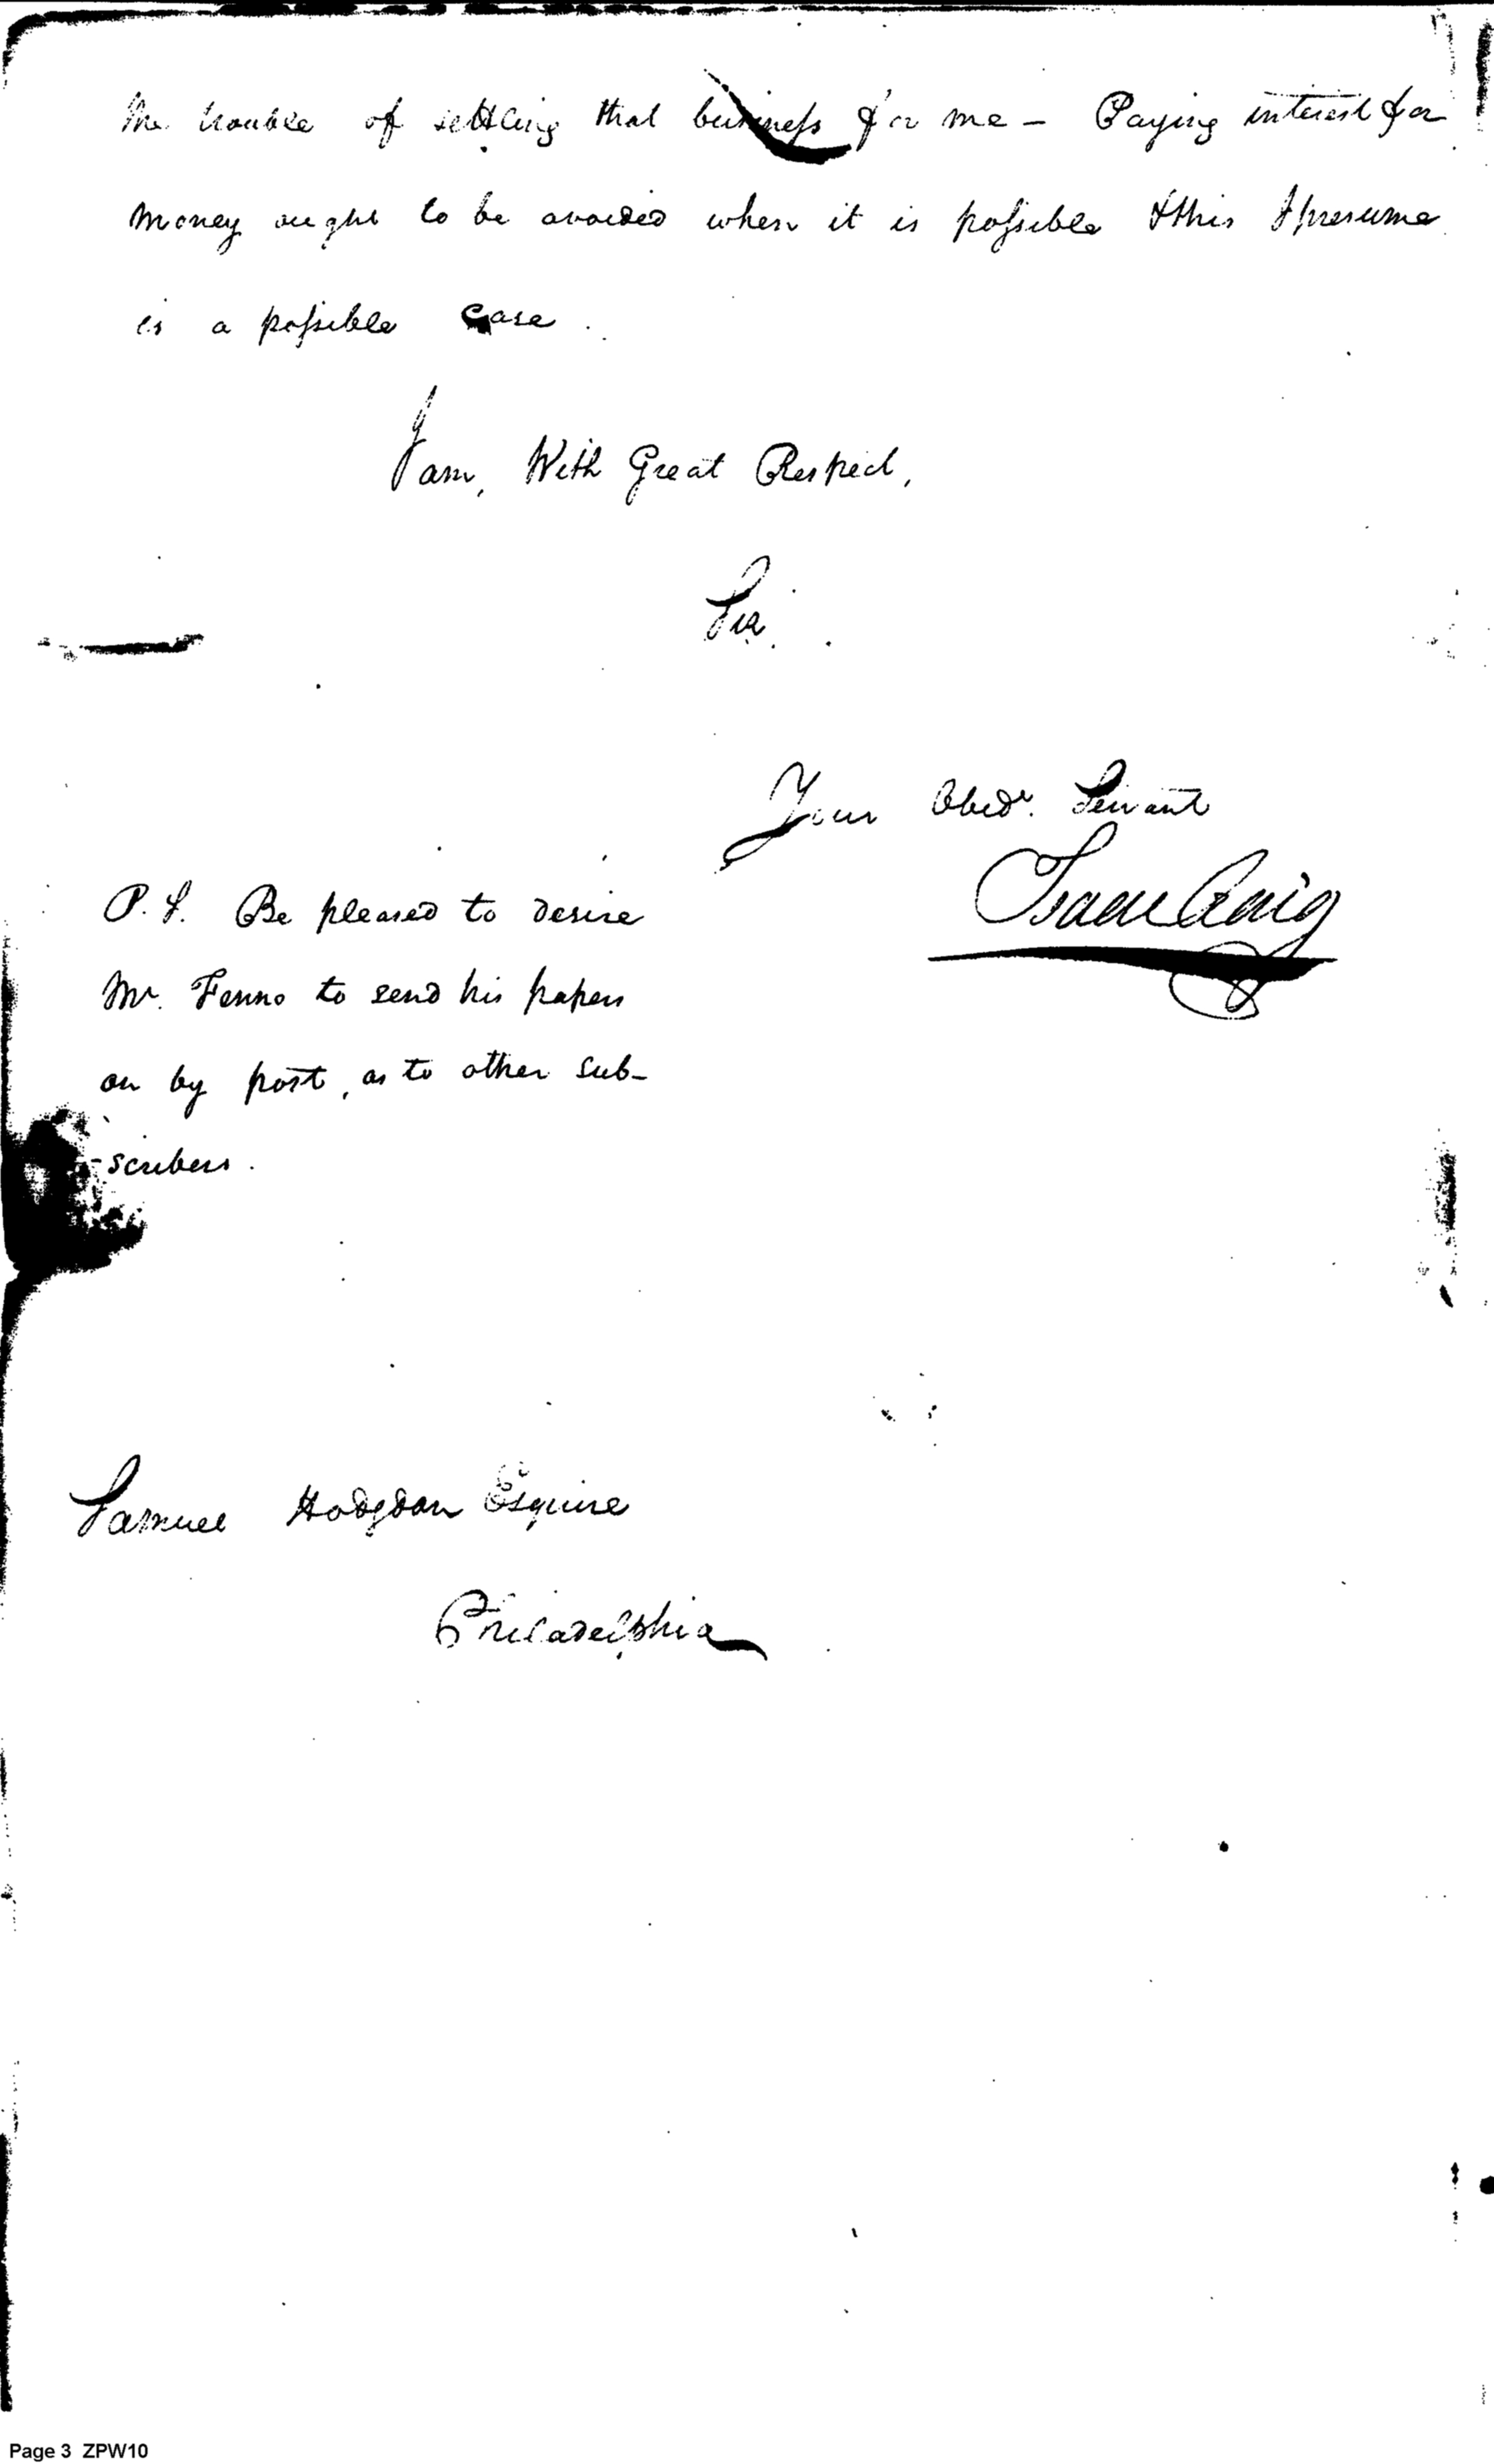 the trouble of settling that business for me – Paying interest for
money ought to be avoided when it is possible & this I presume
is a possible Case.
I am, With Great Respect,
Sir.
Your Obedt. Servant
Isaac Craig
P.S. Be pleased to desire
Mr. Fenno to send his papers
on by post, as to other sub-
-scribers.
Samuel Hodgdon Esquire
Philadelphia
Page 3 ZPW10